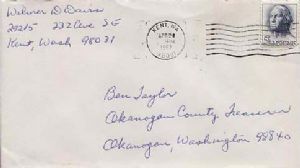 Welmer D Davis
24215 232 Ave S E
Kent, Wash 98031
KENT, WA
APR 24
PM
1983
98031
Ben Taylor
Okanogan County Treasurer
Okanogan, Washington 98840